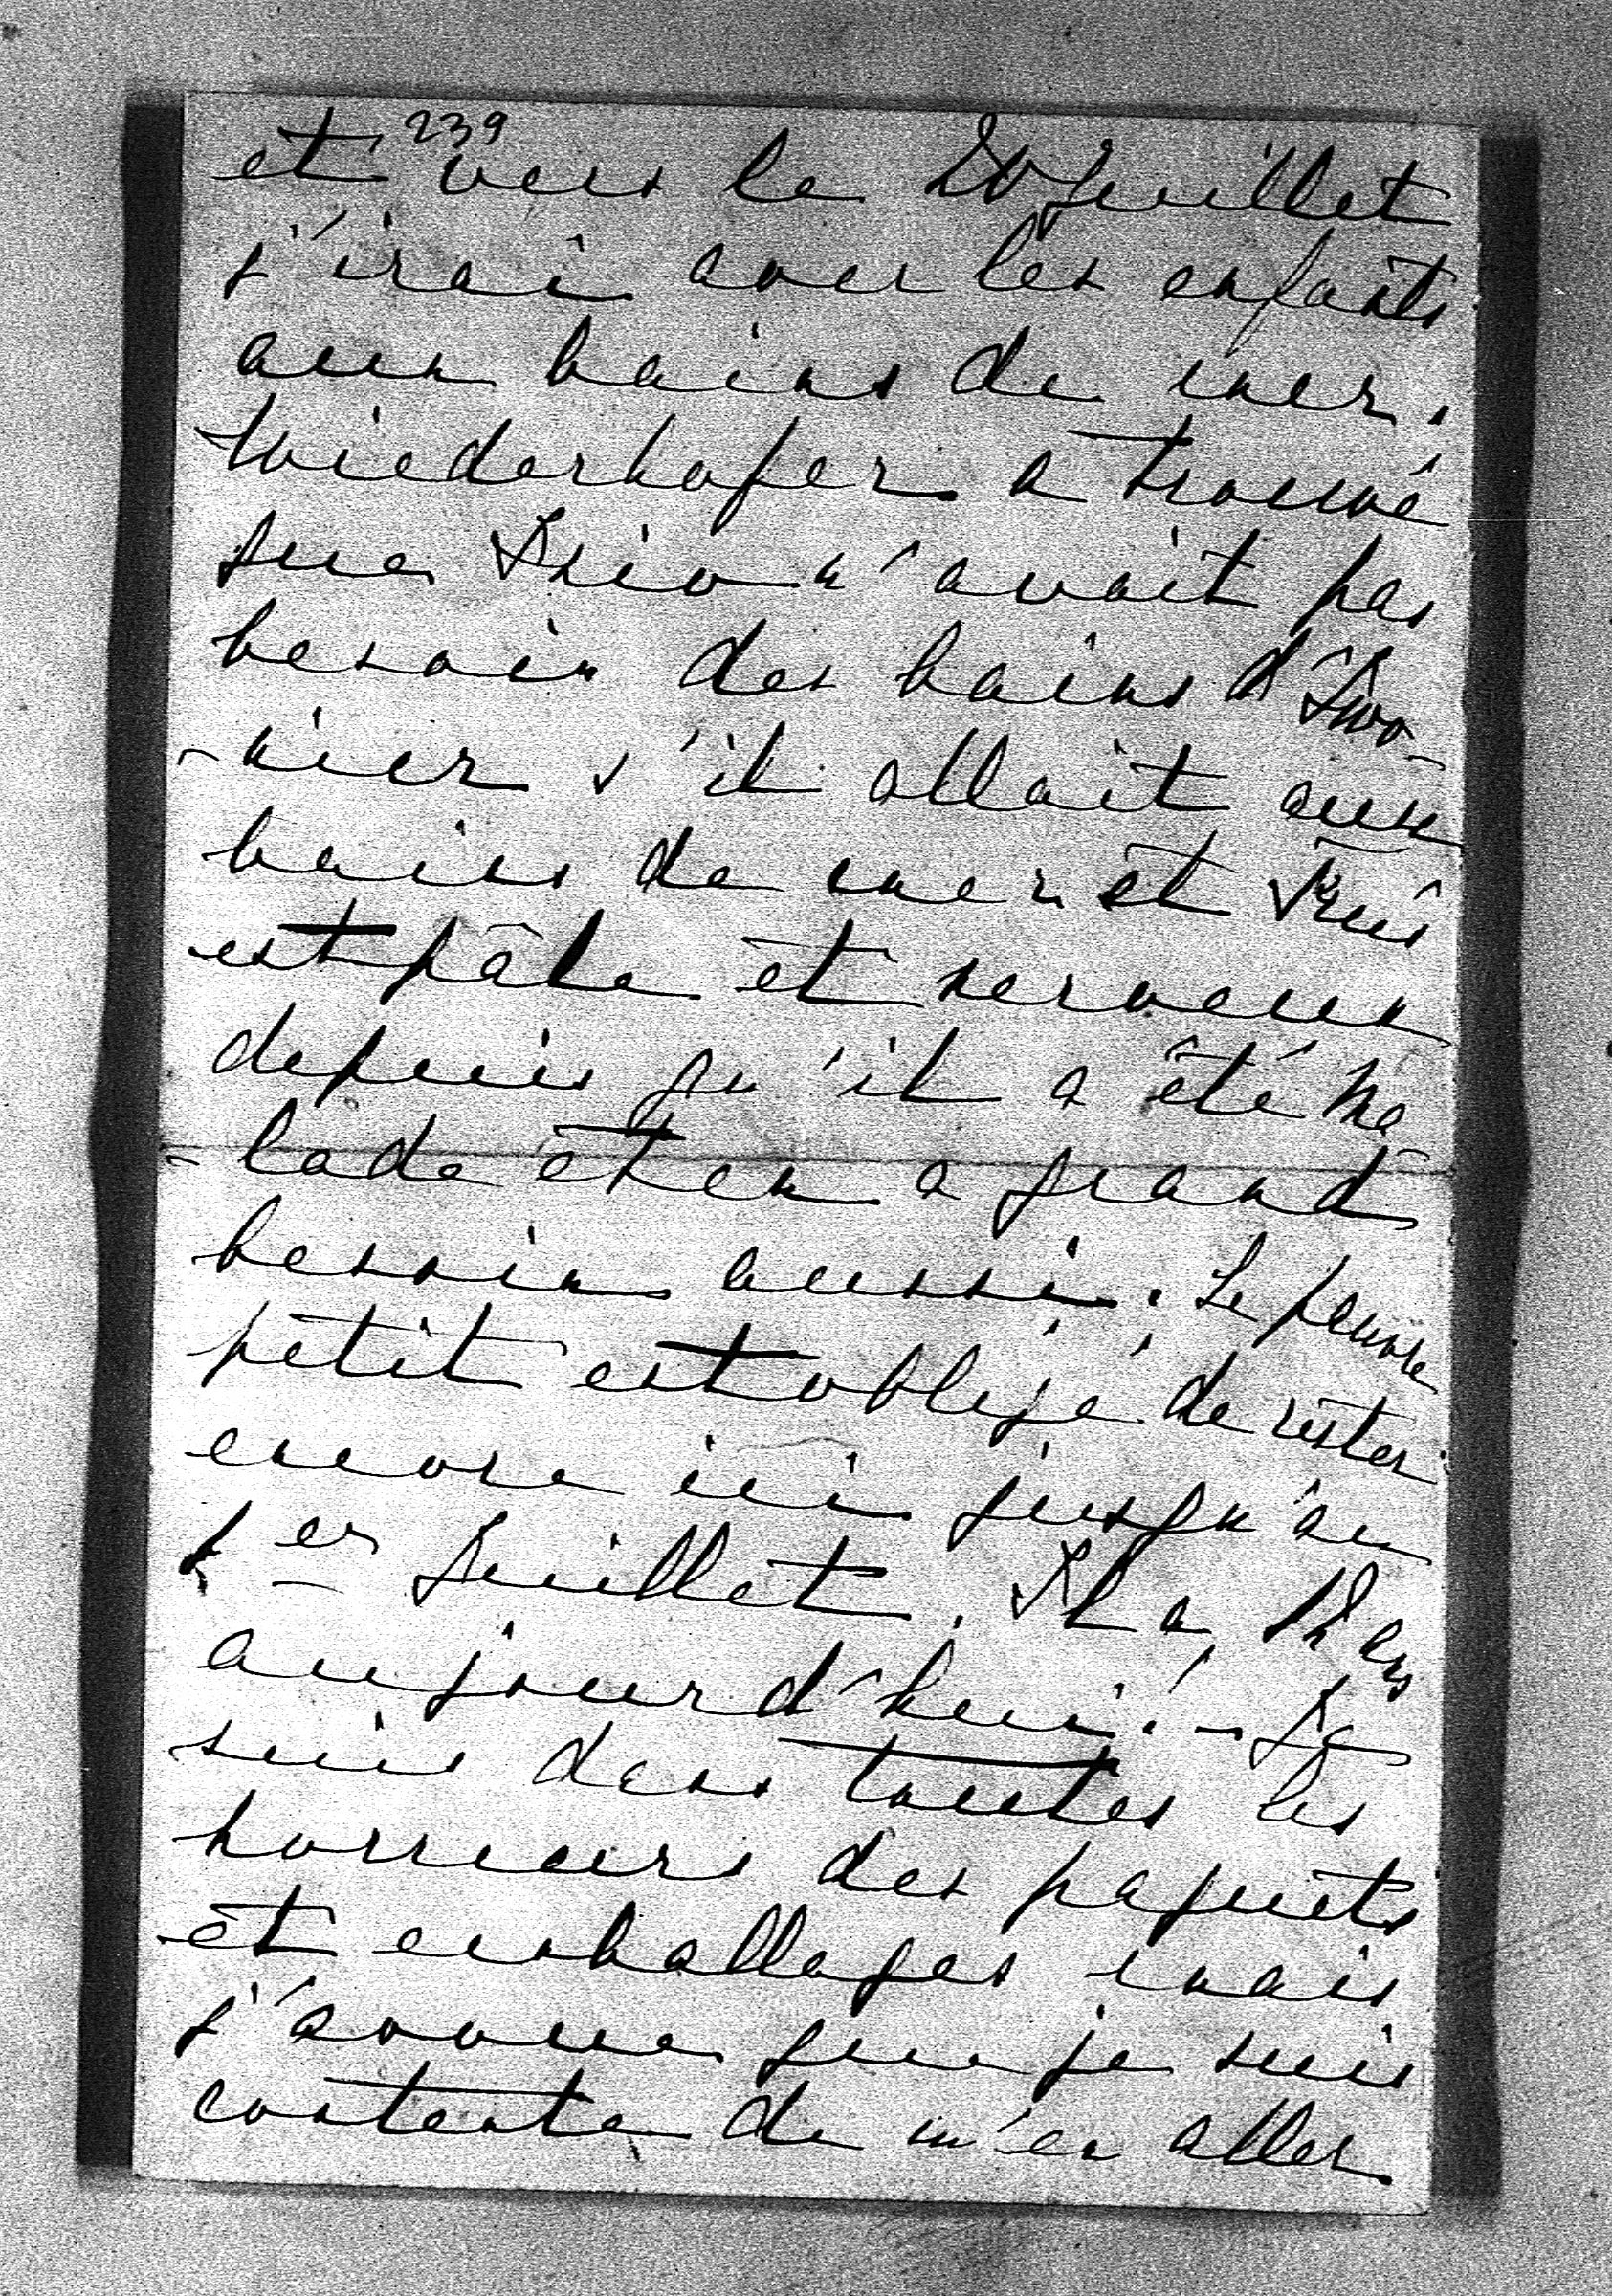 239
et vers le 20 Juillet
j'irai avec les enfants
aux bains de mer.
Wiederhofer a trouvé
que n'avait pas
besoin des bains d'Iwo-
-nicz s'il allait aux
bains de mer et
est pâle et nerveux
depuis qu'il a été ma-
-lade et en a grand
besoin aussi. Le pauvre
petit est obligé de rester
encore ici jusqu'au
1er Juillet. Il a
aujourd'hui! - Je
suis dans toutes les
horreurs des paquets
et emballages mais
j'avoue que je suis
contente de m'en aller